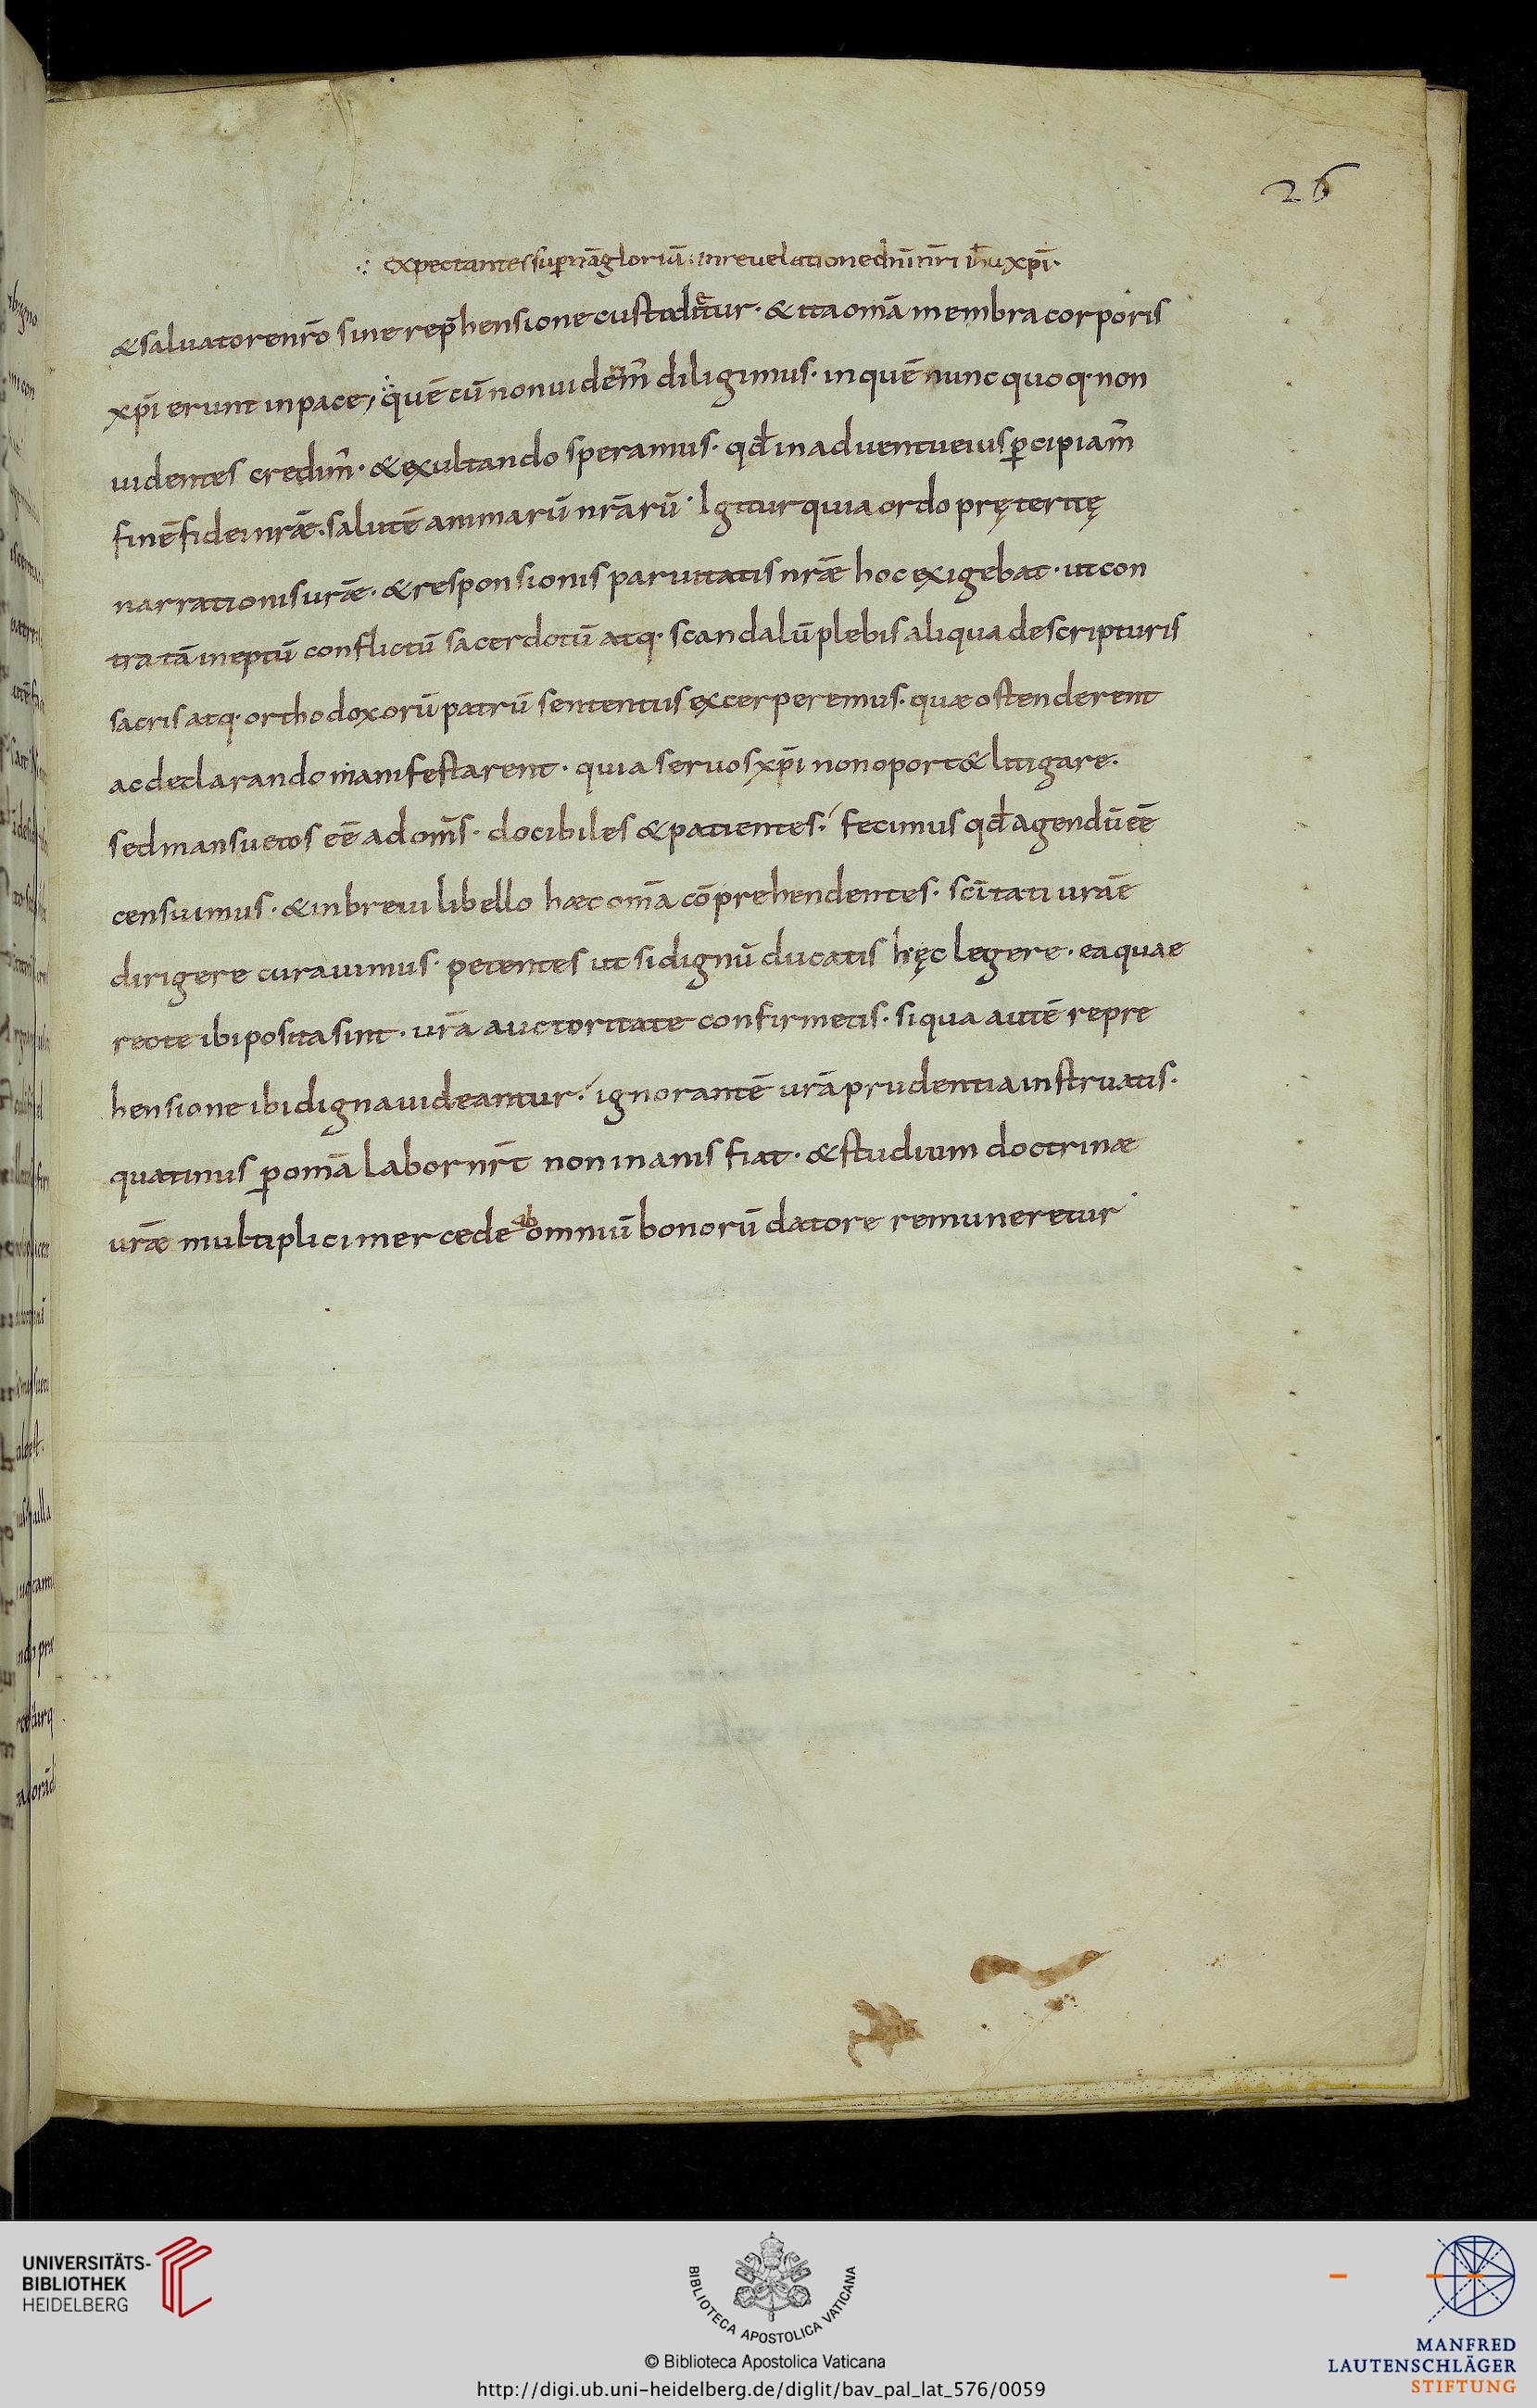 26
∵ expectantes sup̄nā gloriā. in reuelatione dn̄i nr̄i ih̄u xp̄i·
& saluatore nr̄o sine rep̄hensione custodiatur· & ita om̄a membra corporis
xp̄i erunt in pace, quē cū non uidem̄ diligimus· in quē nunc quoq· non
uidentes credim̄· & exultando speramus· qđ in aduentu eius ꝑcipiam̄
finē fidei nr̄æ· salutē animarū nr̄arū· Igitur quia ordo pręteritę
narrationis ur̄æ· & responsionis paruitatis nr̄æ hoc exigebat· ut con
tra tā ineptū conflictū sacerdotū atq· scandalū plebis aliqua de scripturis
sacris atq· orthodoxorū patrū sententiis excerperemus· quæ ostenderent
ac declarando manifestarent· quia seruos xp̄i non oport& litigare·
sed mansuetos eē ad om̄s· docibiles & patientes· fecimus qđ agendū eē
censuimus· & in breui libello hæc om̄a cōprehendentes· sc̄itati ur̄æ
dirigere curauimus· petentes ut si dignū ducatis hęc legere· ea quae
recte ibi posita sint· ur̄a auctoritate confirmetis· si qua autē repre
hensione ibi digna uideantur· ignorantē ur̄a prudentia instruatis·
quatinus ꝑ om̄a labor nr̄t non inanis fiat· & studium doctrinæ
ur̄æ multiplici mercede ab omniū bonorū datore remuneretur·
UNIVERSITÄTS-
BIBLIOTHEK
HEIDELBERG
BIBLIOTECA APOSTOLICA VATICANA
© Biblioteca Apostolica Vaticana
http://digi.ub.uni-heidelberg.de/diglit/bav_pal_lat_576/0059
MANFRED
LAUTENSCHLÄGER
STIFTUNG